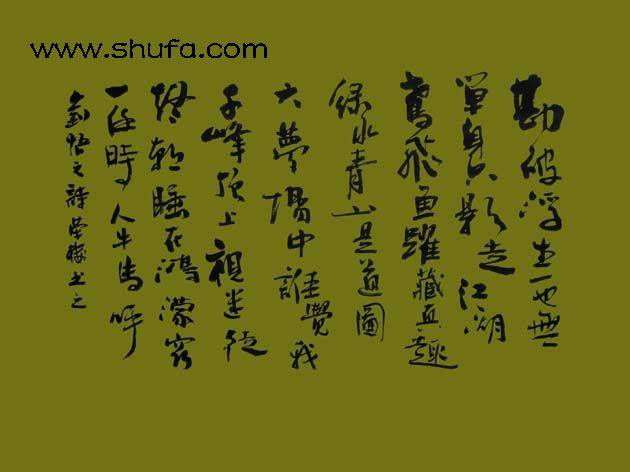 www.shufa.com
勘破浮生一也無
單身只影走江湖
鳶飛魚躍藏真趣
綠水青山是道圖
大夢場中誰覺我
千峰頂上視迷徒
終朝睡在鴻濛竅
一任時人牛馬呼
劉悟元詩
書之